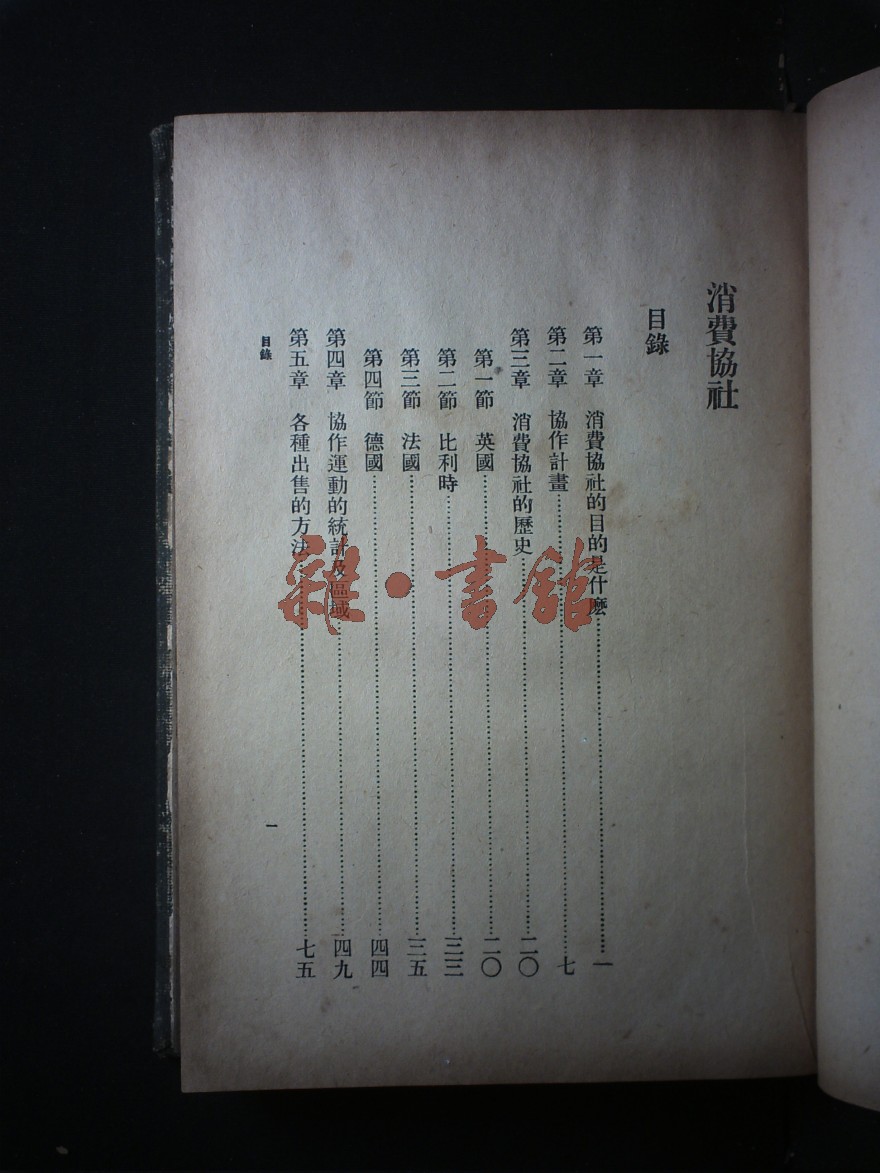 消費協社
目錄
第一章　消費協社的目的是什麽……一
第二章　協作計畫……七
第三章　消費協社的歷史……二〇
第一節　英國……二〇
第二節　比利時……三三
第三節　法國……三五
第四節　德國……四四
第四章　協作運動的統計及區域……四九
第五章　各種出售的方法……七五
目錄
一
雜·書館